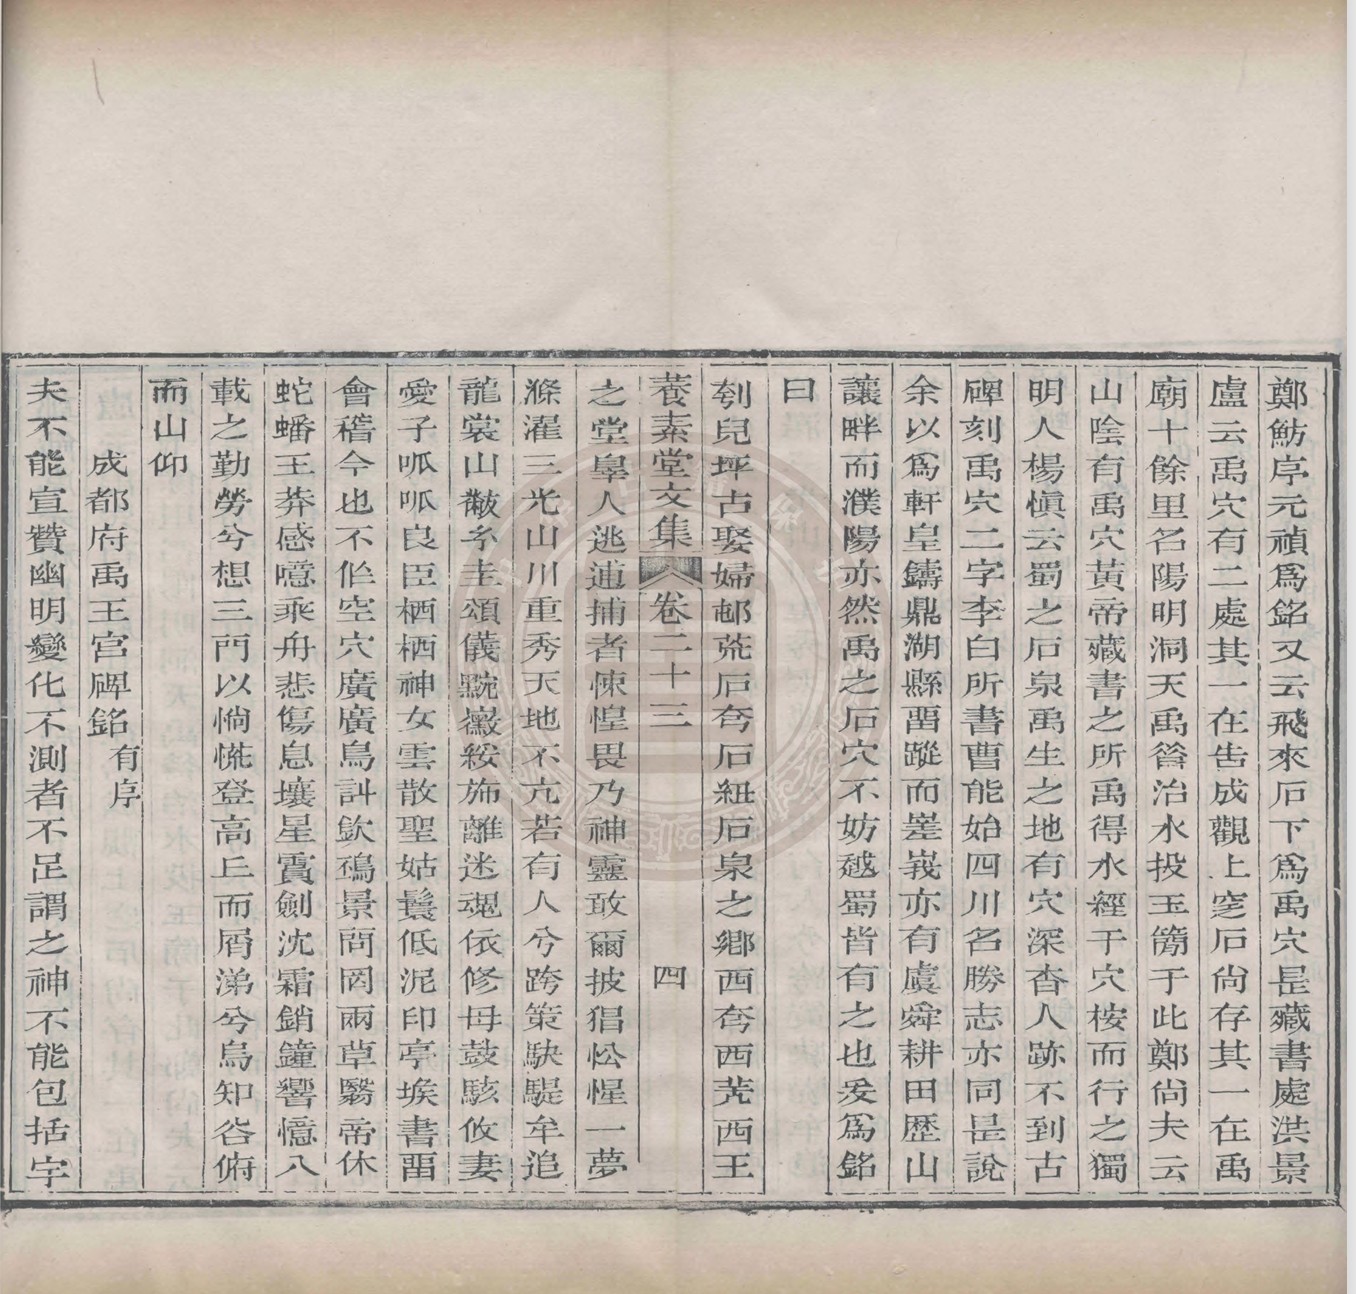 鄭魴序元禎為銘又云飛來石下為禹穴是藏書處洪景
盧云禹穴有二處其一在告成觀上窆石尚存其一在禹
廟十餘里名陽明洞天禹嘗治水投玉簡于此鄭尚夫云
山陰有禹穴黃帝藏書之所禹得水經于穴按而行之獨
明人楊慎云蜀之石泉禹生之地有穴深杳人跡不到古
碑刻禹穴二字李白所書曹能始四川名勝志亦同是說
余以為軒皇鑄鼎湖縣畱蹤而嶪峩亦有虞舜耕田歷山
讓畔而濮陽亦然禹之石穴不妨越蜀皆有之也爰為銘
曰
刳兒坪古娶婦邨荒石夸石紐石泉之鄉西夸西羌西王
養素堂文集 卷二十三 四
之堂辠人逃逋捕者悚惶畏乃神靈敢爾披猖忪惺一夢
滌濯三光山川重秀天地不亢若有人兮跨策駃騠牟追
龍裳山黻糸圭頌儀黦襹綏施離迷魂依修母鼓駭攸妻
愛子呱呱良臣栖栖神女雲散聖姑鬟低泥印亭埃書畱
會稽今也不伦空穴廣廣鳥訆欽鴀景問罔兩草翳帝休
蛇蟠王莽感噫乘舟悲傷息壤星實劍沈霜銷鐘響憶八
載之勤勞兮想三門以惝慌登高丘而屑涕兮烏知谷俯
而山仰
成都府禹王宮碑銘有序
夫不能宣贊幽明變化不測者不足謂之神不能包括宇